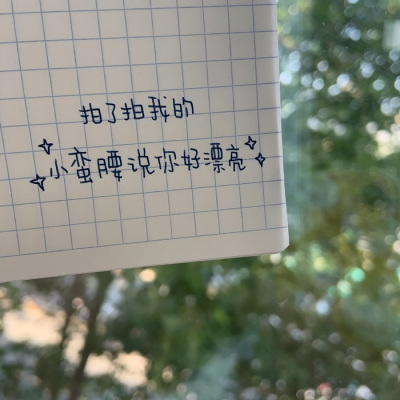 拍了拍我的
小蛮腰说你好漂亮